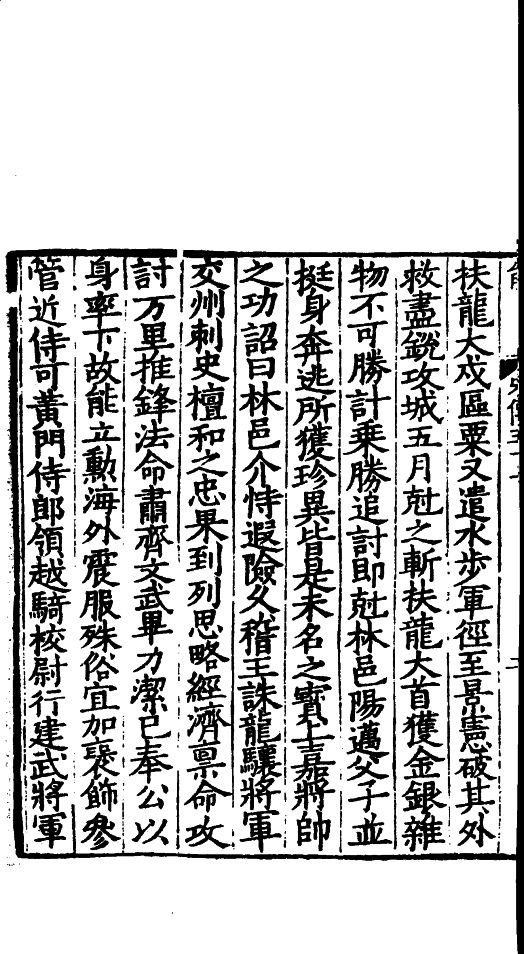 扶龍大戍區粟又遣水步軍徑至景憲破其外
救盡銳攻城五月尅之斬扶龍大首獲金銀雜
物不可勝計乗勝追討即尅林邑陽邁父子並
挺身奔逃所獲珍異皆是未名之寳上嘉將帥
之功詔曰林邑介恃遐險久稽王誅龍驤將軍
交州刺史檀和之忠果到列思略經濟禀命攻
討万里推鋒法命肅齊文武畢力潔己奉公以
身率下故能立勳海外震服殊俗宜加褒飾參
管近侍可黃門侍郎領越騎校尉行建武將軍